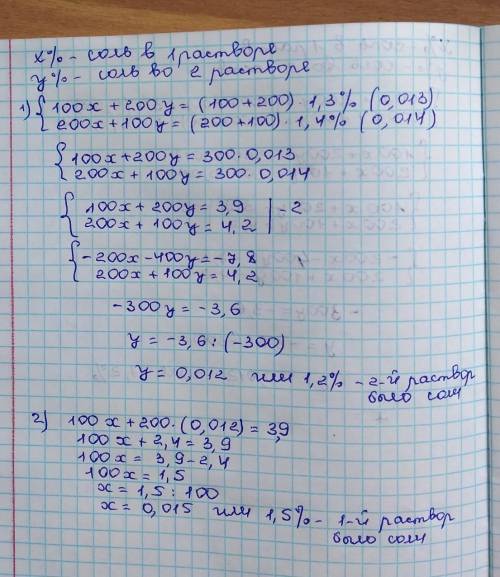 x% - соль в 1 растворе
y% - соль во 2 растворе
1) { 100x + 200y = (100+200) · 1,3% (0,013)
200x + 100y = (200+100) · 1,4% (0,014)
{ 100x + 200y = 300 · 0,013
200x + 100y = 300 · 0,014
{ 100x + 200y = 3,9 | -2
200x + 100y = 4,2
{ -200x - 400y = -7,8
200x + 100y = 4,2
-300y = -3,6
y = -3,6 : (-300)
y = 0,012 или 1,2% - 2-й раствор
было соли
2) 100x + 200 · (0,012) = 3,9
100x + 2,4 = 3,9
100x = 3,9 - 2,4
100x = 1,5
x = 1,5 : 100
x = 0,015 или 1,5% - 1-й раствор
было соли